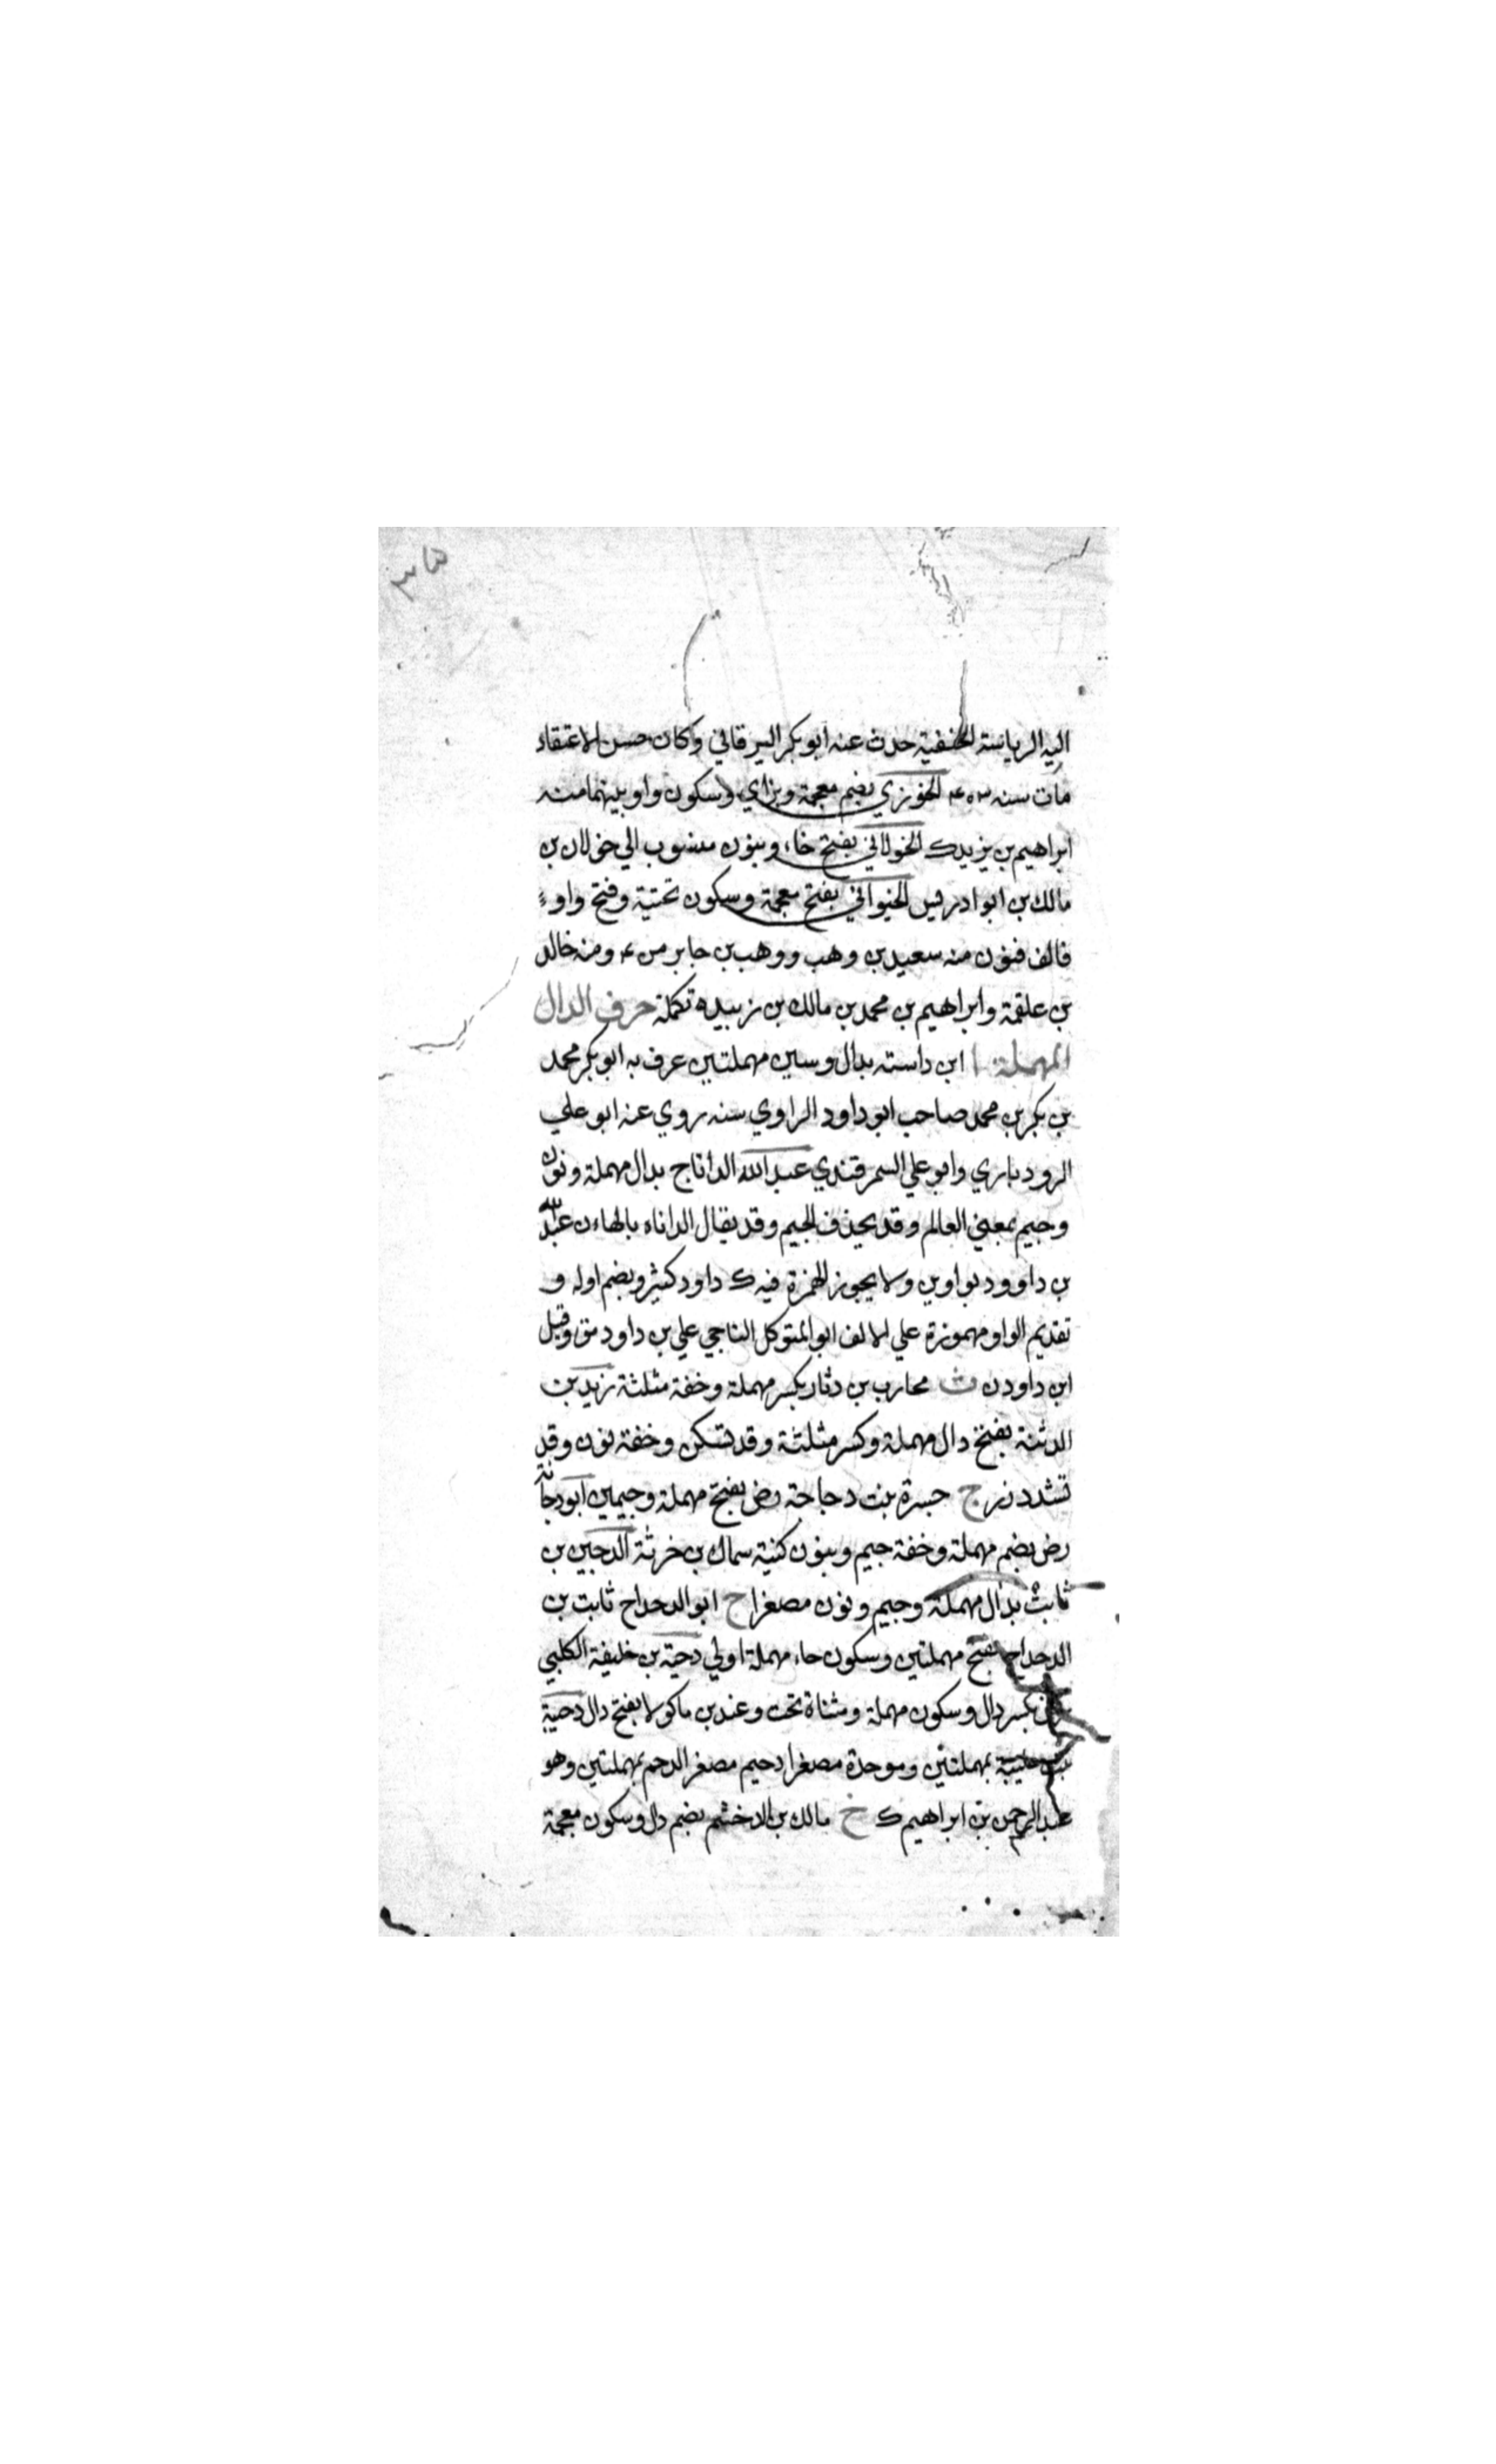 ٣٥
اليه الرياسة الحنفية حدث عنه ابو بكر البرقاني وكان حسن الاعتقاد
مات سنه ٤٠٣ الخوزي بضم معجمة وبزاي وسكون واو بينهما منه
ابراهيم بن يزيد ك الخولاني بفتح خاء وبنون منسوب الي خولان بن
مالك بن ابو ادريس الخيواني بفتح معجمة وسكون تحتية وفتح واو
فالف فنون منه سعيد بن وهب ووهب بن جابر من ٤ ومنه خالد
بن علقمة وابراهيم بن محمد بن مالك بن زبيد تكملة حرف الدال
المهملة ا ابن داسته بدال وسين مهملتين عرف به ابو بكر محمد
بن بكر بن محمد صاحب ابو داود الراوي سنه روي عنه ابو علي
الرودباري وابو علي السمرقندي عبد الله الداناج بدال مهملة ونون
وجيم بمعني العالم وقد يحذف الجيم وقد يقال الداناه بالهاء ن عبد الله
بن داوود بواوين ولا يجوز الهمزة فيه ك داود كثير وبضم اوله و
تقديم الواو مهموزة علي الالف ابو المتوكل الناجي علي بن داود وقيل
ابن داود ن ث محارب بن دثار بكسر مهملة وخفة مثلثة زيد بن
الدثنة بفتح دال مهملة وكسر مثلثة وقد تسكن وخفة نون وقد
تشدد ج جسرة بنت دجاجة رض بفتح مهملة وجيمين ابو دجانة
رض بضم مهملة وخفة جيم وبنون كنية سماك بن خرشة الدجين بن
ثابت بدال مهملة وجيم ونون مصغرا ح ابو الدحداح ثابت بن
الدحداح بفتح مهملتين وسكون حاء مهملة اولي دحية بن خليفة الكلبي
بكسر دال وسكون مهملة ومثناة تحت وعند بن ماكولا بفتح دال دحيبة
بمهملتين وموحدة مصغرا دحيم مصغر الدحم بمهملتين وهو
عبد الرحمن بن ابراهيم ك خ مالك بن الدخشم بضم دال وسكون معجمة